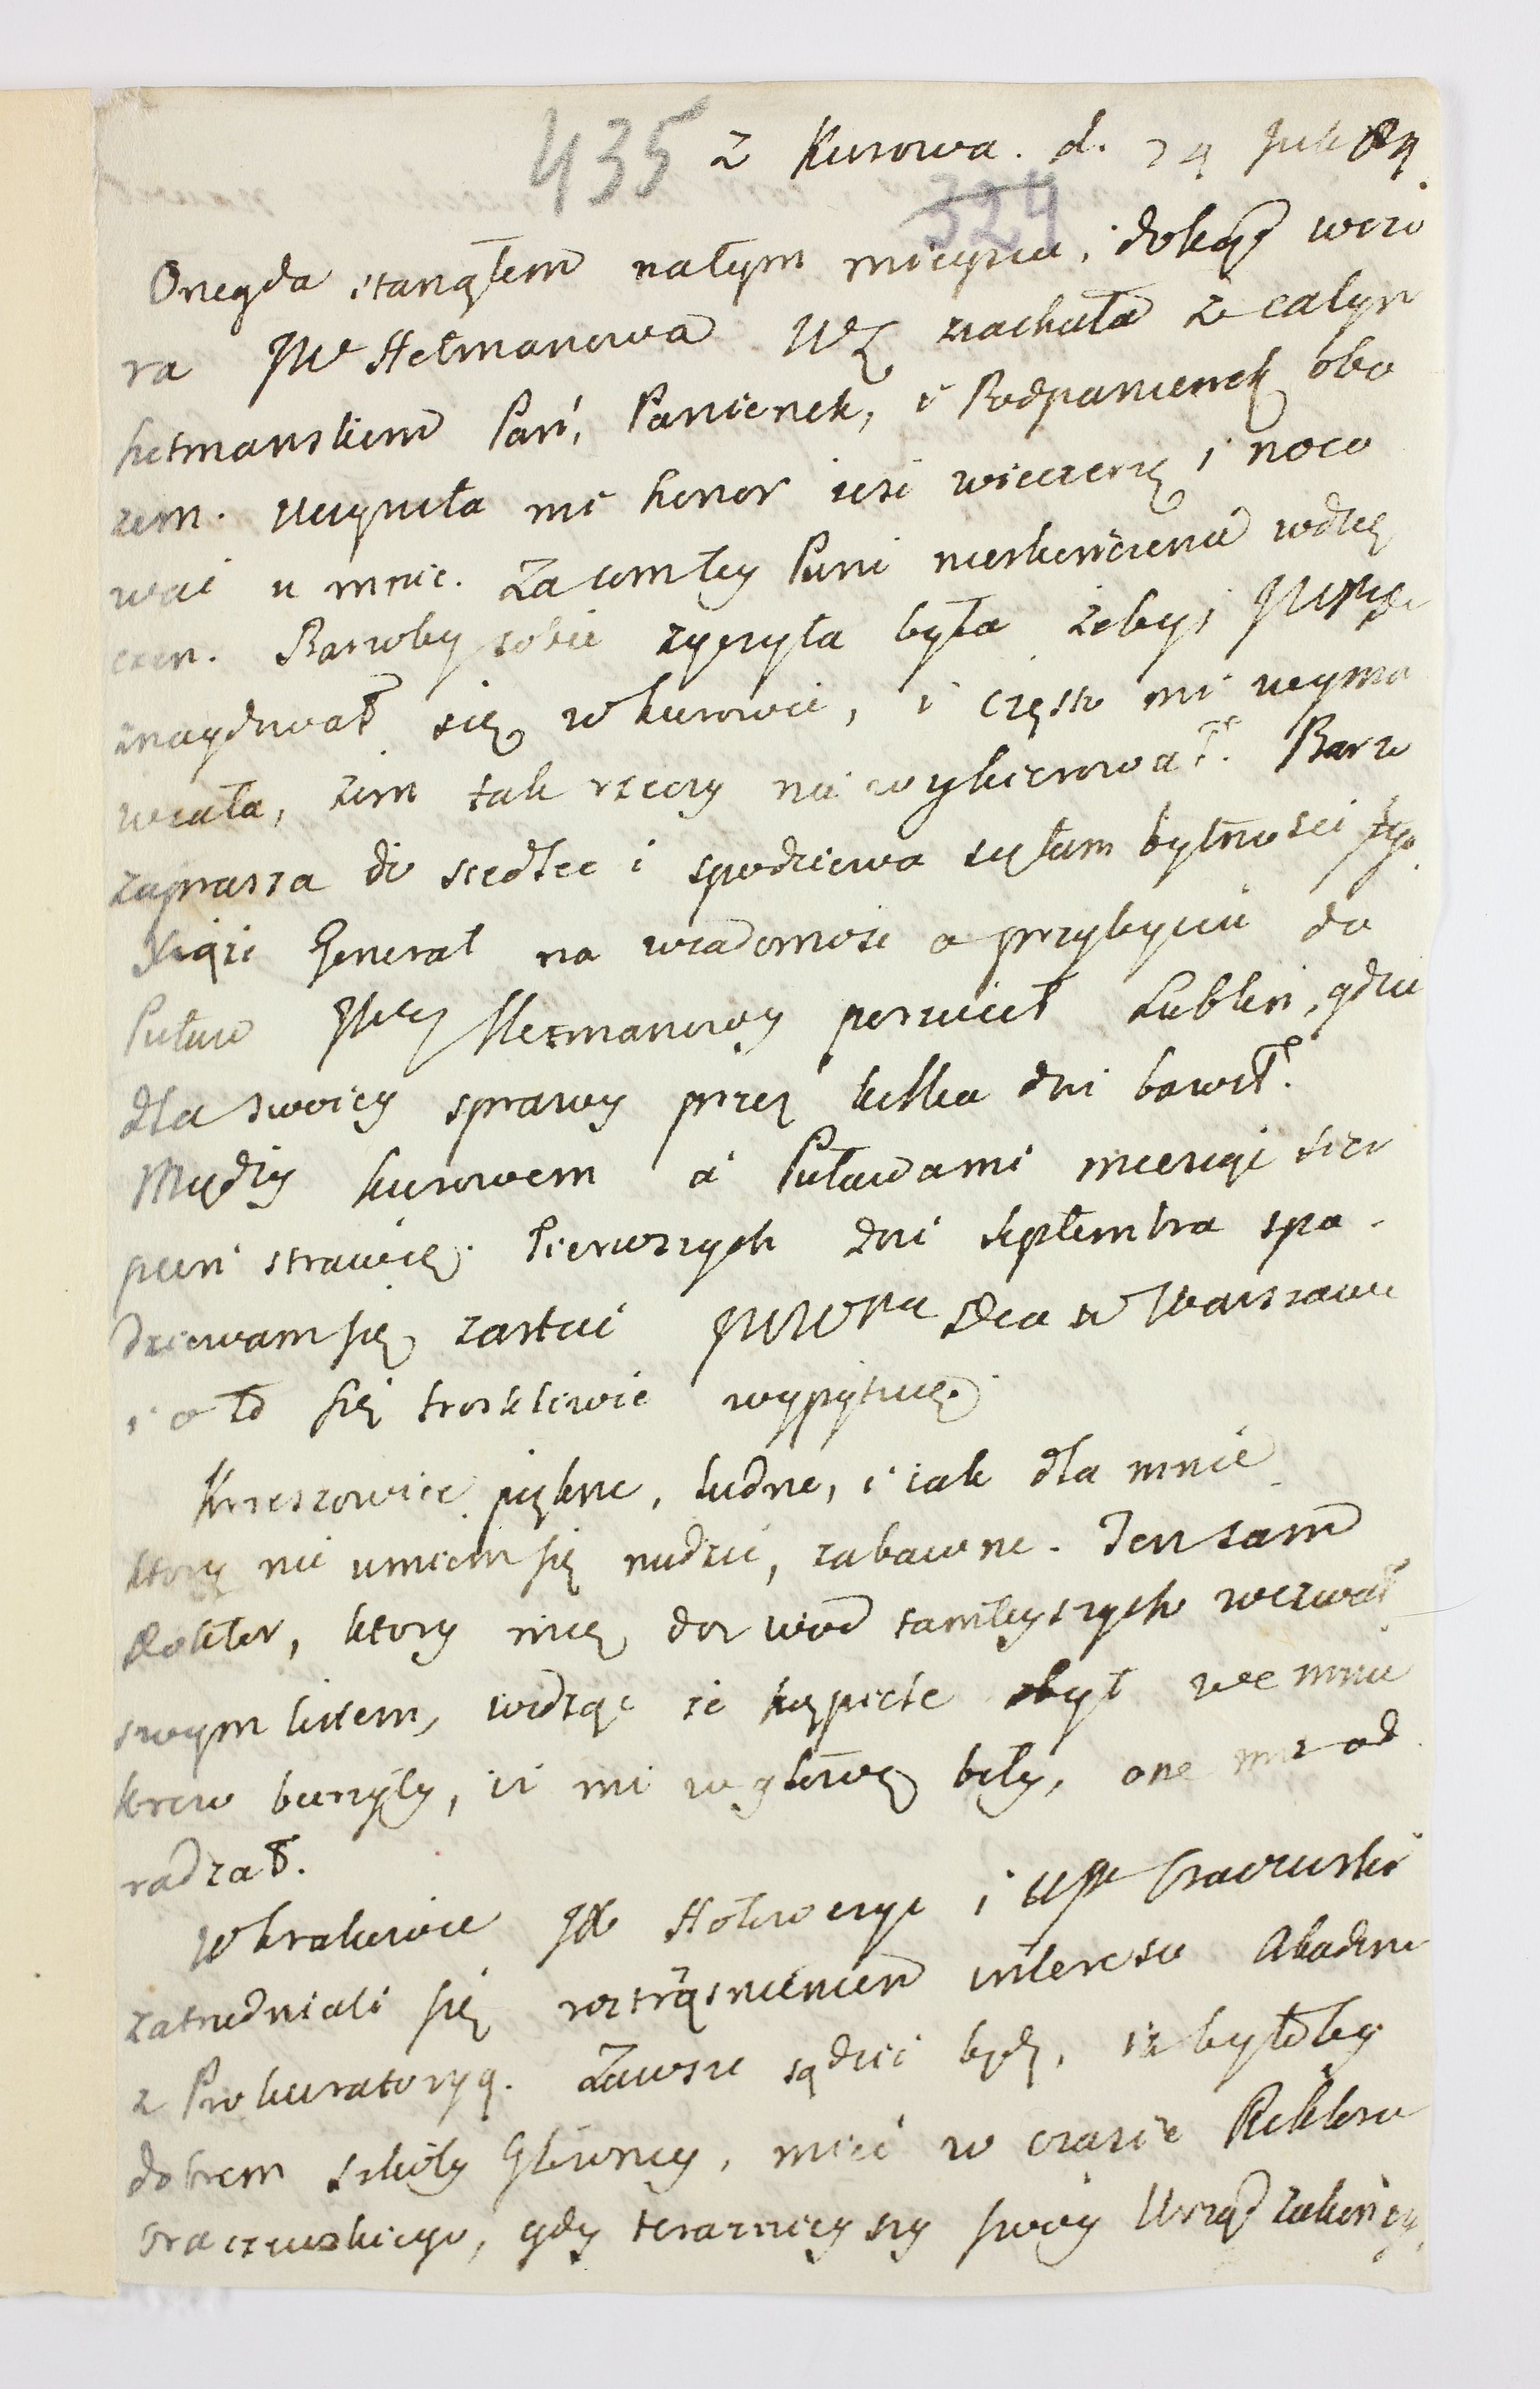 435 z Kurowa. d. 24 Juli 84.
324
Onegda stanąłem natym mieyscu, dokąd wczo
ra JW Hetmanowa WX ziachała ze całym
hetmanskiem Pań, Panienek, i Podpanienek obo
zem. Uczyniła mi honor ieść wieczerzę i noco
wać u mnie. Za tomtey Pani nieskończenie wdzię
czen. Barzoby sobie zyczyła była żebyś
znaydował się w Kurowie, i często mi wyma
wiała, zem tak rzeczy nie wykierował. Barzo
zaprasza do siedlec i spodziewa się tam bytności
Xiąże Generał na wiadomość o przybyciu do
Puław JWey Hetmanowy porzucił Lublin, gdzie
dla swoiey sprawy przez kilka dni bawił.
Między Kurowem a Puławami miesiąc sier
pień strawię. Pierwszych dni Septembra spo-
dziewam się zastać JWWPa Dea w Warszawie
i o to się troskliwie wypytuię.
Krzeszowice piękne, ludne, i iak dla mnie
ktory nie umiem się nudzić, zabawne. Ten sam
Doktor, ktory mię do wod tamteyszych wezwał
swym listem, widząc że kąpiele zbyt we mnie
krew burzyły, iż mi w głowę biły, one mi od
radzał.
W krakowie JX Hołowczyc i JP Oraczewski
zatrudniali się roztrząśnieniem interesu Akademii
z Prokuratoryą. Zawsze sądzić będę, iż byłoby
dobrem szkoły Głowney, mieć w czasie Rektora
Oraczewskiego, gdy teraznieyszy swoy Urząd zakończy,